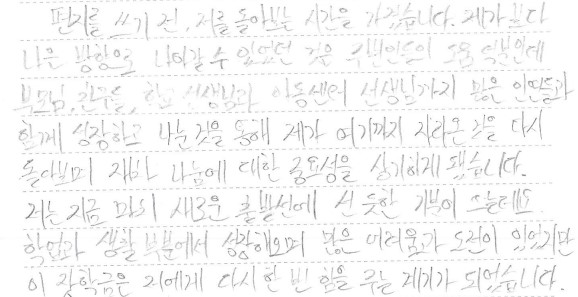 편지를 쓰기 전, 저를 돌아보는 시간을 가졌습니다. 제가 보다
나은 방향으로 나아갈 수 있었던 것은 주변인들의 도움 덕분인데
부모님, 친구들, 학교 선생님과 아동센터 선생님까지 많은 인연들과
함께 성장하고 나눈 것을 통해 제가 여기까지 자라온 것을 다시
돌아보며 재차 나눔에 대한 중요성을 상기하게 됐습니다.
저는 지금 마치 새로운 출발선에 선 듯한 기분이 드는데요
학업과 생활 부분에서 성장해오며 많은 어려움과 도전이 있었지만
이 장학금은 저에게 다시 한 번 힘을 주는 계기가 되었습니다.